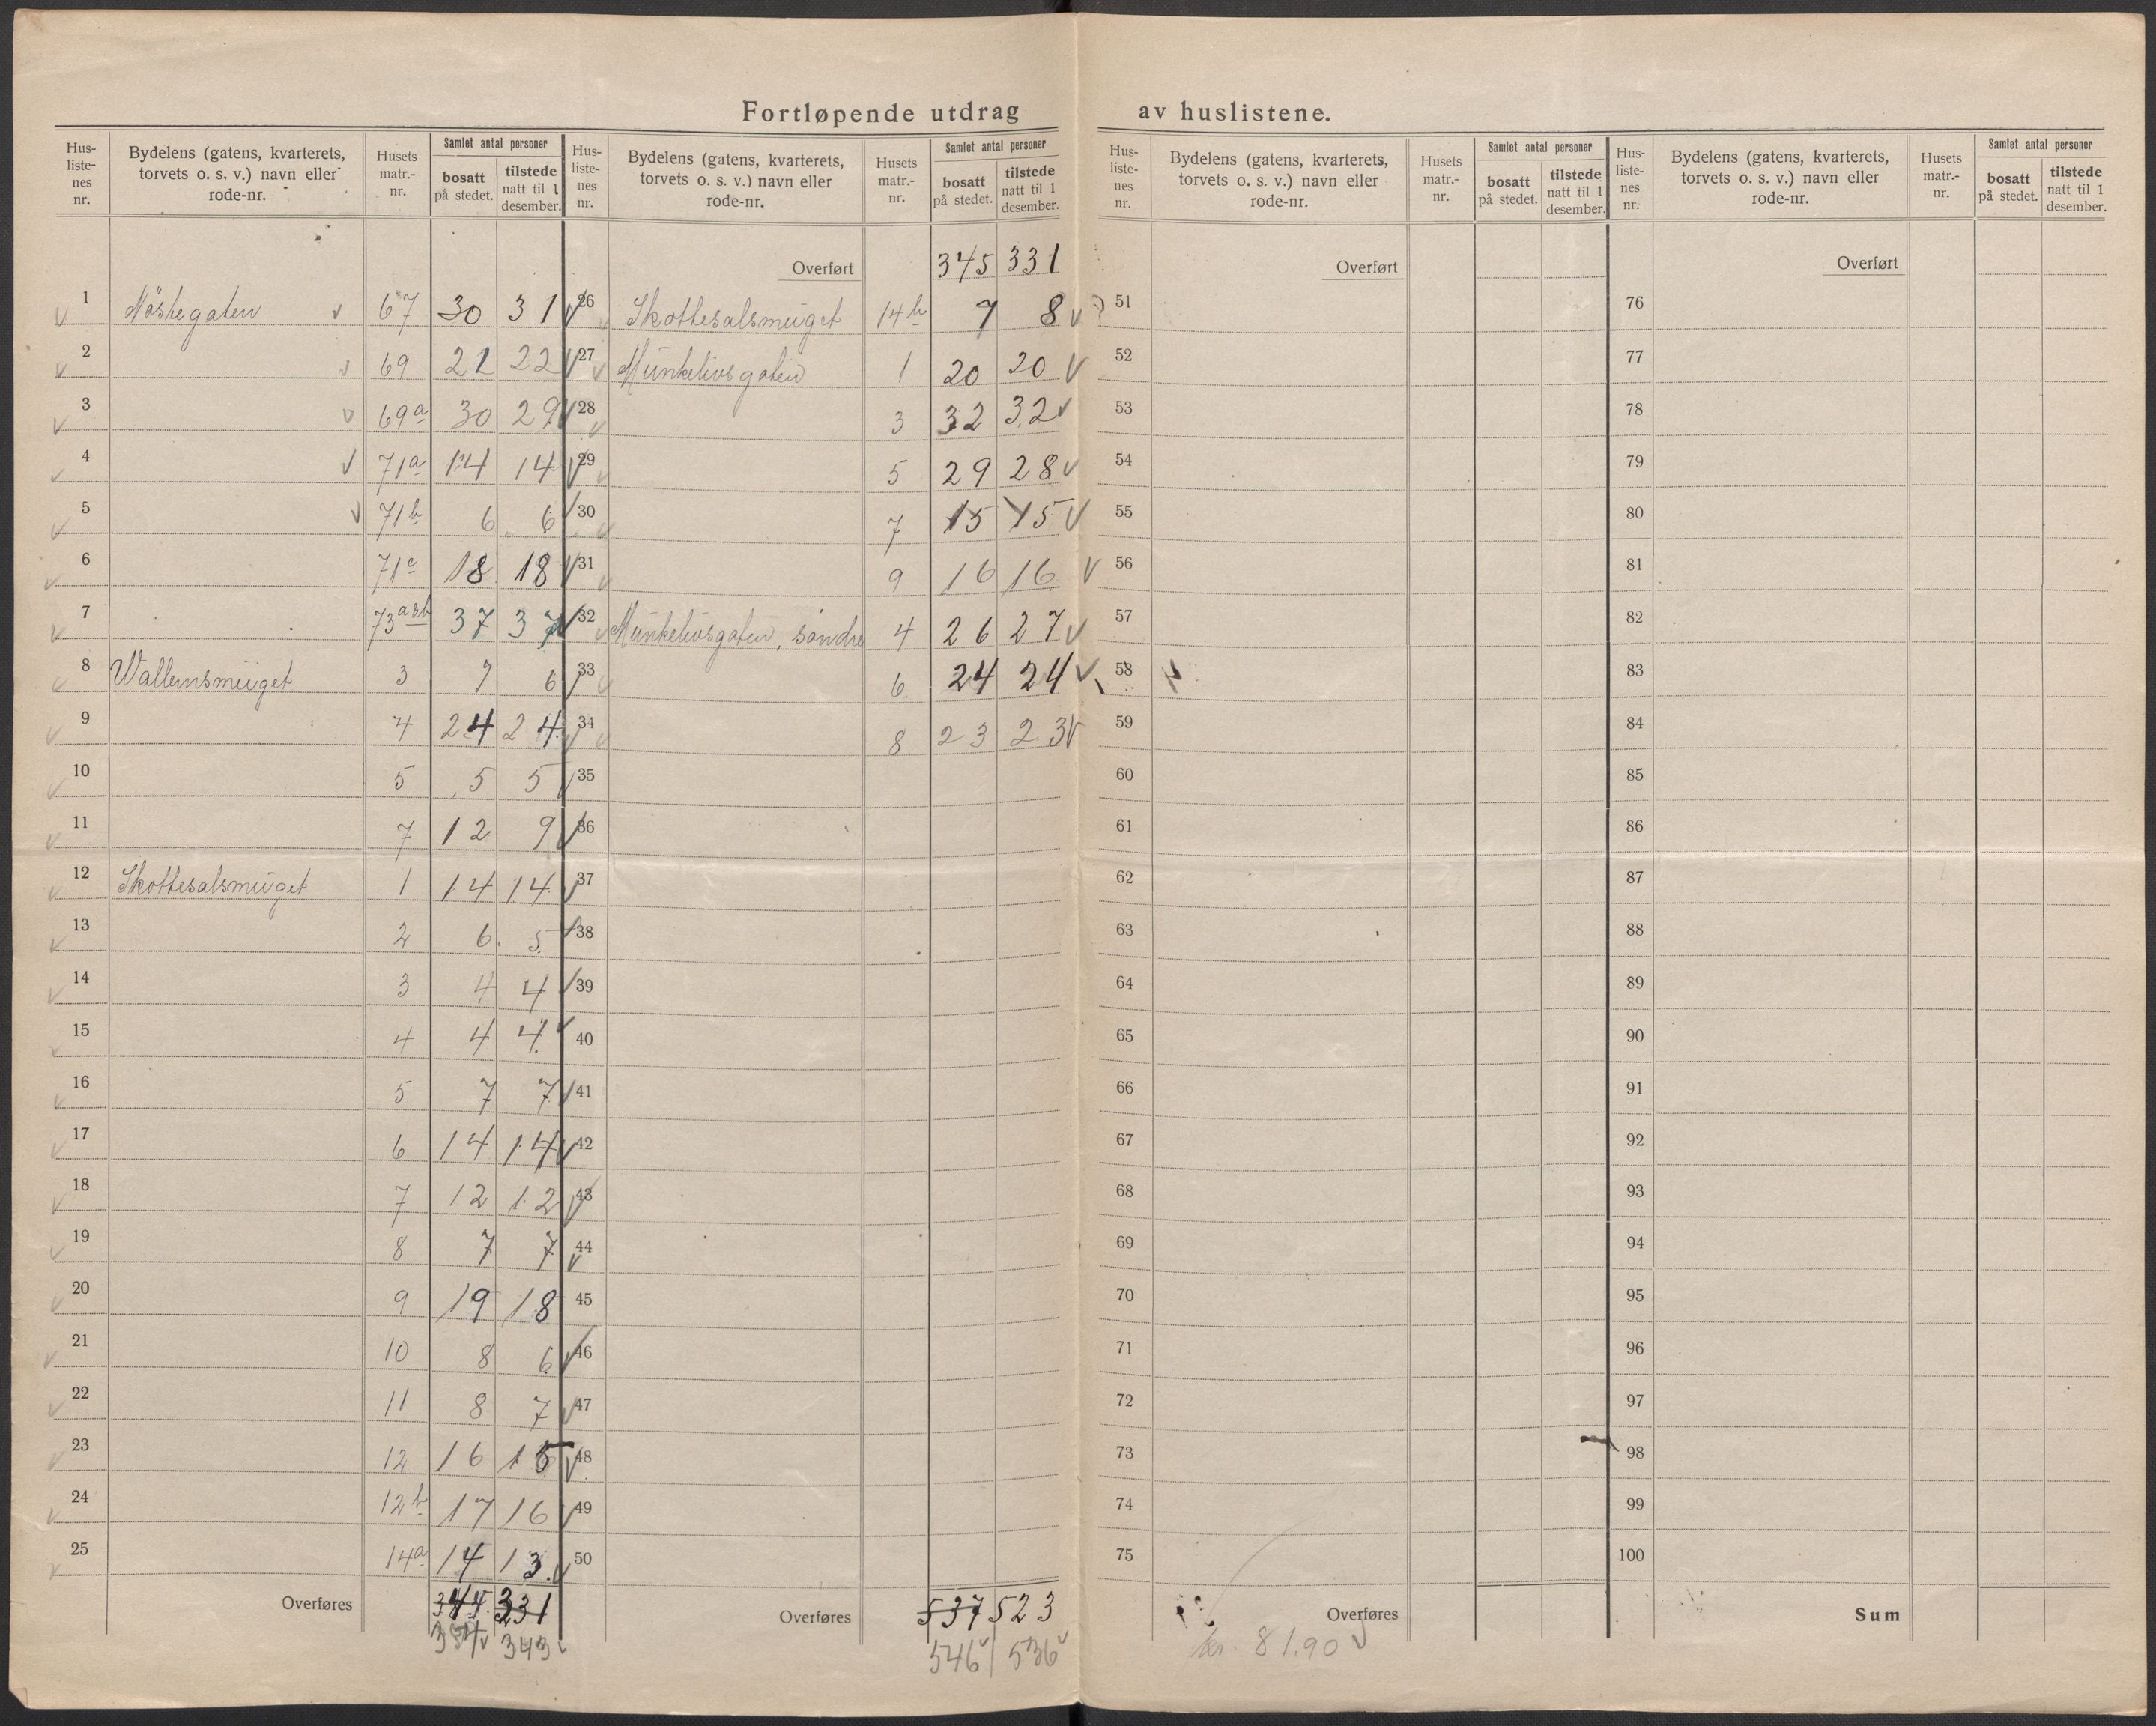 Fortløpende utdrag av huslistene.
Hus-liste-nes nr. Bydelens (gatens, kvarterets, torvets o. s. v.) navn eller rode-nr. Husets matr.-nr. Samlet antal personer bosatt på stedet. tilstede natt til 1 desember.
Hus-liste-nes nr. Bydelens (gatens, kvarterets, torvets o. s. v.) navn eller rode-nr. Husets matr.-nr. Samlet antal personer bosatt på stedet. tilstede natt til 1 desember.
Hus-liste-nes nr. Bydelens (gatens, kvarterets, torvets o. s. v.) navn eller rode-nr. Husets matr.-nr. Samlet antal personer bosatt på stedet. tilstede natt til 1 desember.
Hus-liste-nes nr. Bydelens (gatens, kvarterets, torvets o. s. v.) navn eller rode-nr. Husets matr.-nr. Samlet antal personer bosatt på stedet. tilstede natt til 1 desember.
1 Nöstegaten 67 30 31
2 69 21 22
3 69a 30 29
4 71a 14 14
5 71b 6 6
6 71c 18 18
7 73a&b 37 37
8 Wallemsmüget 3 7 6
9 4 24 24
10 5 5 5
11 7 12 9
12 Skottesalsmüget 1 14 14
13 2 6 5
14 3 4 4
15 4 4 4
16 5 7 7
17 6 14 14
18 7 12 12
19 8 7 7
20 9 19 18
21 10 8 6
22 11 8 7
23 12 16 15
24 12b 17 16
25 14a 14 13
Overføres 331
343
Overført 345 331
26 Skottesalsmüget 14b 7 8
27 Münkelivsgaten 1 20 20
28 3 32 32
29 5 29 28
30 7 15 15
31 9 16 16
32 Münkelivsgaten, søndre 4 26 27
33 6 24 24
34 8 23 23
35
36
37
38
39
40
41
42
43
44
45
46
47
48
49
50
Overføres 537 523
546 536
Overført
51
52
53
54
55
56
57
58
59
60
61
62
63
64
65
66
67
68
69
70
71
72
73
74
75
Overføres
kr. 81.90
Overført
76
77
78
79
80
81
82
83
84
85
86
87
88
89
90
91
92
93
94
95
96
97
98
99
100
Sum